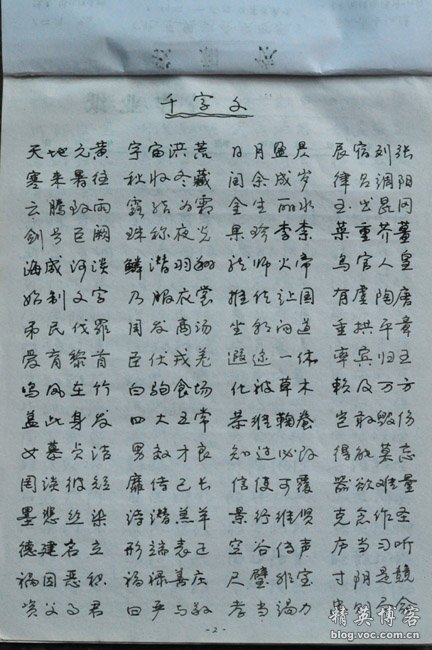 千字文
天地元黄 宇宙洪荒 日月盈昃 辰宿列张
寒来暑往 秋收冬藏 闰余成岁 律吕调阳
云腾致雨 露结为霜 金生丽水 玉出昆冈
剑号巨阙 珠称夜光 果珍李柰 菜重芥姜
海咸河淡 鳞潜羽翔 龙师火帝 鸟官人皇
始制文字 乃服衣裳 推位让国 有虞陶唐
吊民伐罪 周发商汤 坐朝问道 垂拱平章
爱育黎首 臣伏戎羌 遐迩一体 率宾归王
鸣凤在竹 白驹食场 化被草木 赖及万方
盖此身发 四大五常 恭惟鞠养 岂敢毁伤
女慕贞洁 男效才良 知过必改 得能莫忘
罔谈彼短 靡恃己长 信使可覆 器欲难量
墨悲丝染 诗羔羊 景行维贤 克念作圣
德建名立 形端表正 空谷传声 习听
祸因恶积 福缘善庆 尺璧非宝 寸阴是竞
资父事君 曰严与敬 孝当竭力
-2-
精英博客
blog.voc.com.cn